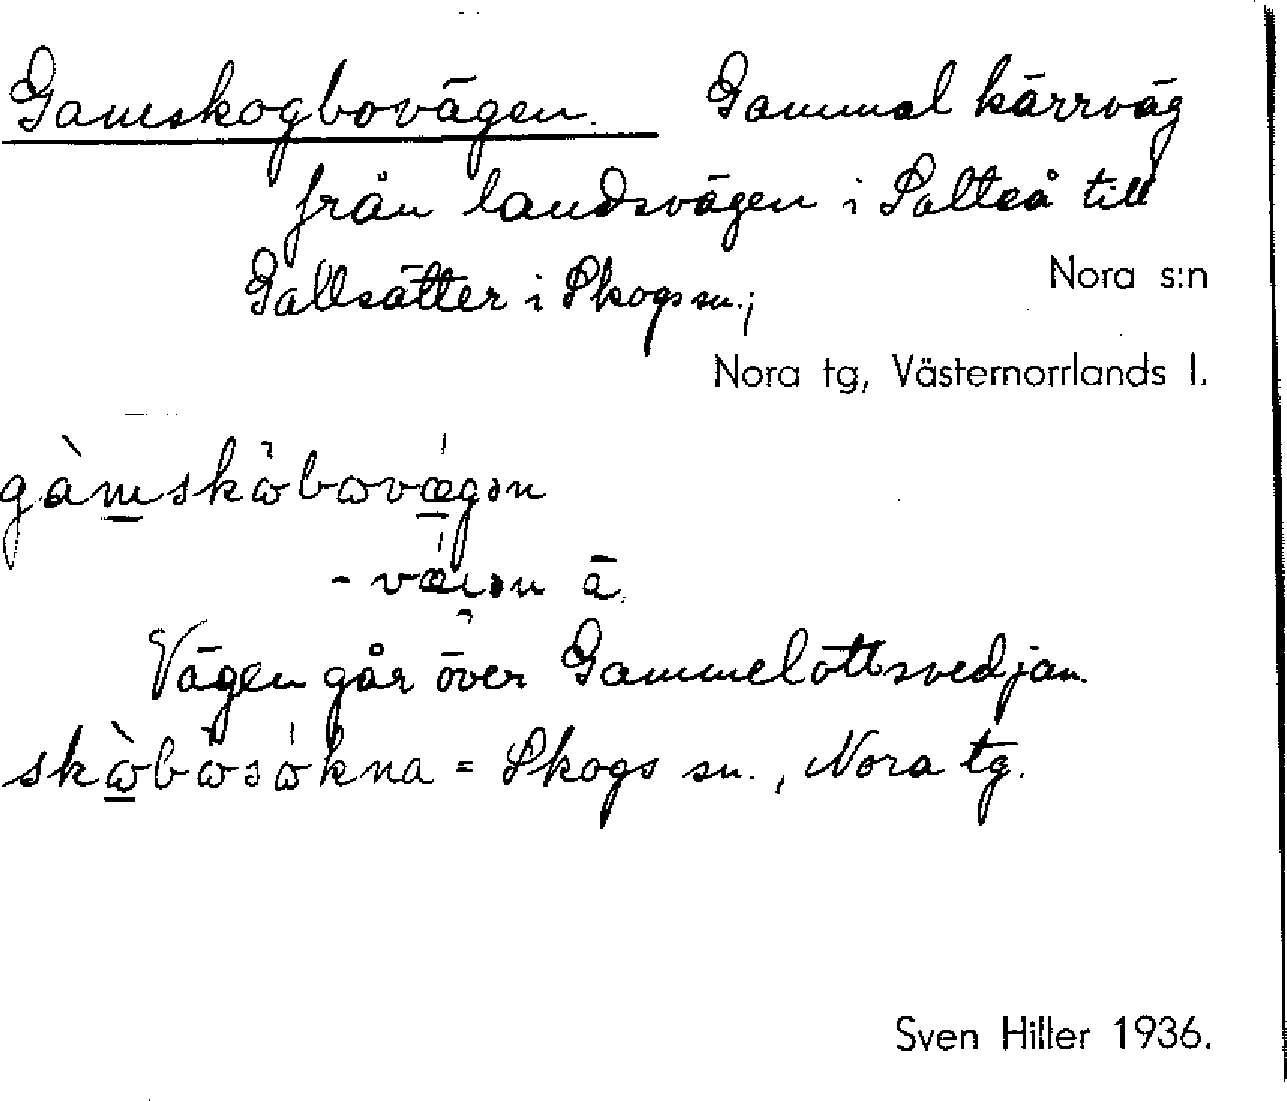 Gamskogbovägen. Gammal kärrväg
från landsvägen i Salteå till
Gallsätter i Skogs sn.;
Nora s:n
Nora tg, Västernorrlands l.
gàmskωbωvægən
- væiən ä.
Vägen går över Gammelottsvedjan.
skωbωsωkna = Skogs sn., Nora tg.
Sven Hiller 1936.